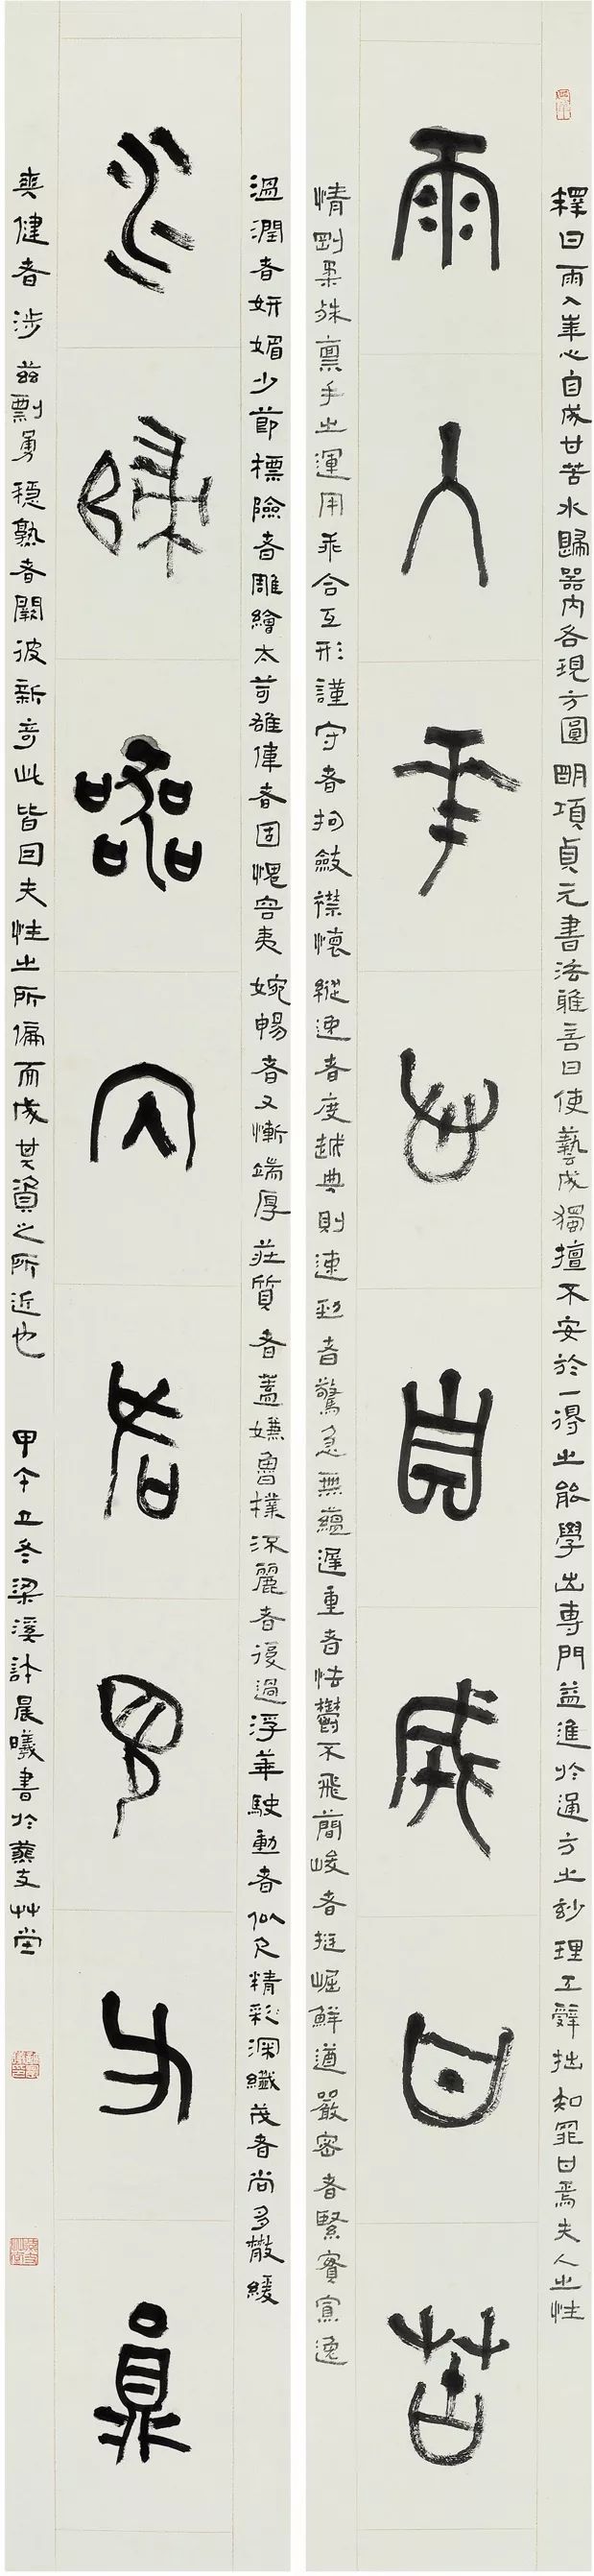 釋曰雨入華心自成甘苦水歸器內各現方圓明項貞元書法雅言曰使藝成獨擅不安於一得之能學出專門益進於通方之妙理工辭拙知罪甘焉夫人之性
雨入華心自成甘苦
情剛柔殊稟手之運用乖合互形謹守者拘斂襟懷縱逸者度越典則速勁者驚急無蘊遲重者怯鬱不飛簡峻者挺崛鮮遒嚴密者緊實寡逸
溫潤者妍媚少節標險者雕繪太苛雄偉者固愧容夷婉暢者又慚端厚莊質者蓋嫌魯樸流麗者復過浮華駛動者似欠精彩深纖茂者尚多散緩
水歸器內各現方圓
爽健者涉茲剽勇穩熟者闕彼新奇此皆因夫性之所偏而成其資之所近也 甲午立冬梁溪計晨曦書於支艸堂